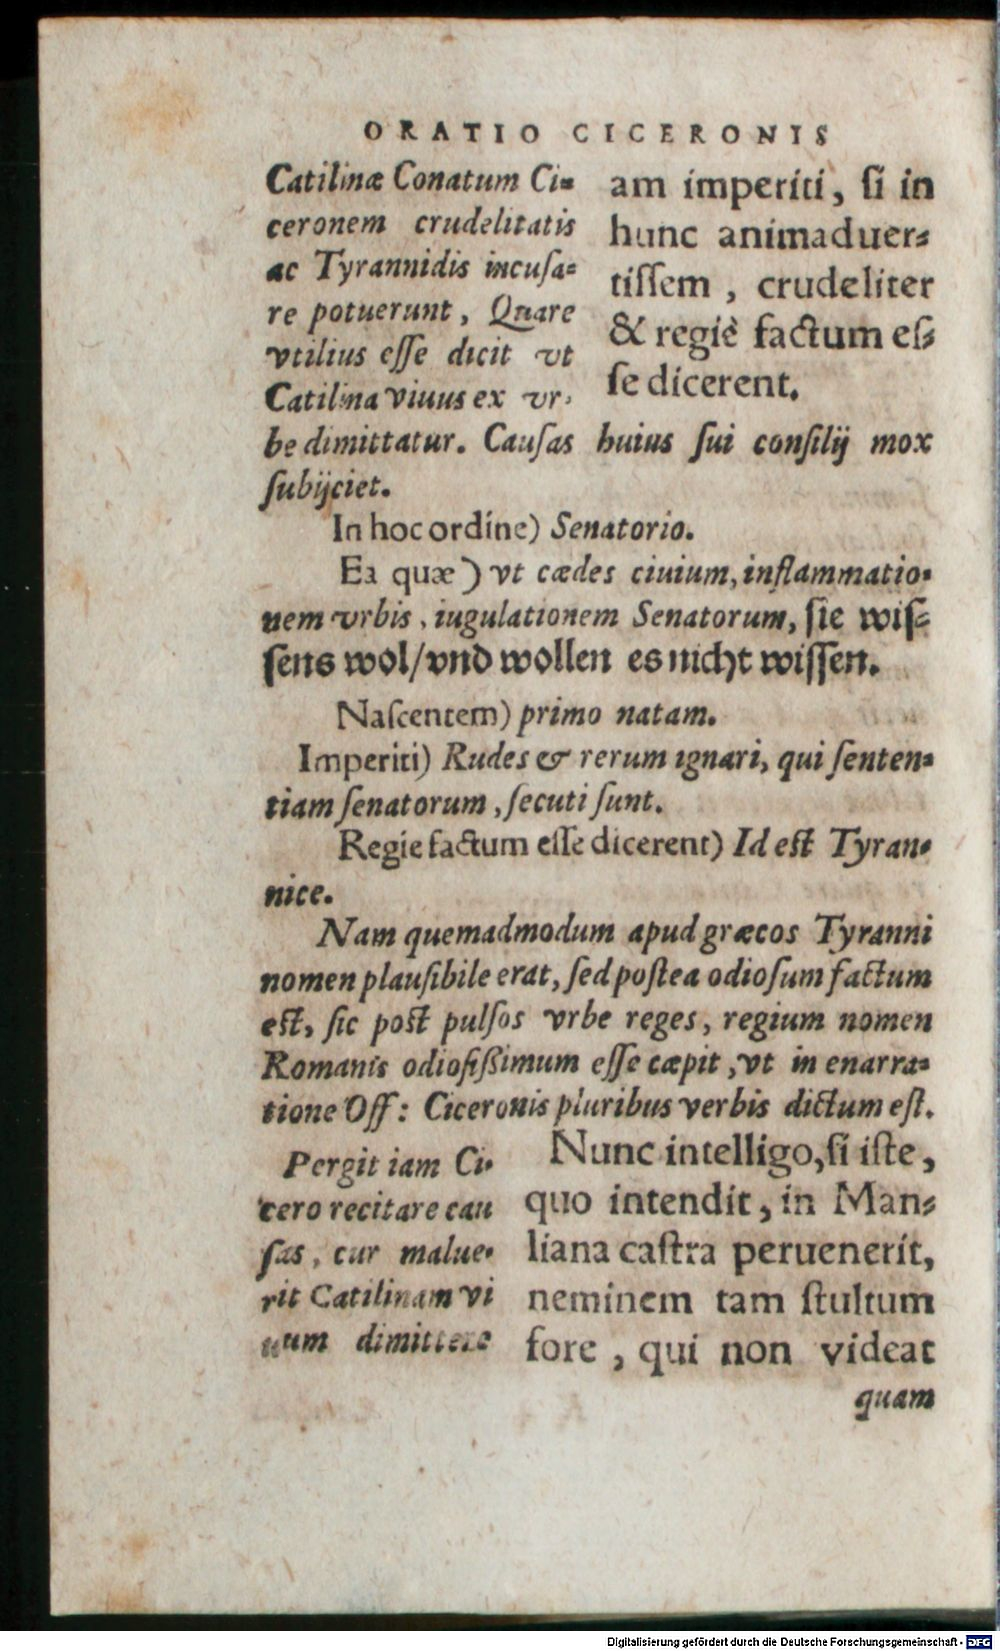 ORATIO CICERONIS
Catilinæ Conatum Ci=
ceronem crudelitatis
ac Tyrannidis incusa=
re potuerunt, Quare
vtilius esse dicit vt
Catilina viuus ex vr=
be dimittatur. Causas huius sui consilij mox
subijciet.
am imperiti, si in
hunc animaduer=
tissem, crudeliter
& regiè factum es=
se dicerent.
In hoc ordine) Senatorio.
Ea quæ) vt cædes ciuium, inflammatio=
nem vrbis, iugulationem Senatorum, sie wis=
sens wol/vnd wollen es nicht wissen.
Nascentem) primo natam.
Imperiti) Rudes & rerum ignari, qui senten=
tiam senatorum, secuti sunt.
Regie factum esse dicerent) Id est Tyran=
nice.
Nam quemadmodum apud græcos Tyranni
nomen plausibile erat, sed postea odiosum factum
est, sic post pulsos vrbe reges, regium nomen
Romanis odiosißimum esse cæpit, vt in enarra=
tione Off: Ciceronis pluribus verbis dictum est.
Pergit iam Ci=
cero recitare cau
sas, cur malue=
rit Catilinam vi
uum dimittere
Nunc intelligo, si iste,
quo intendit, in Man=
liana castra peruenerit,
neminem tam stultum
fore, qui non videat
quam
Digitalisierung gefördert durch die Deutsche Forschungsgemeinschaft - DFG